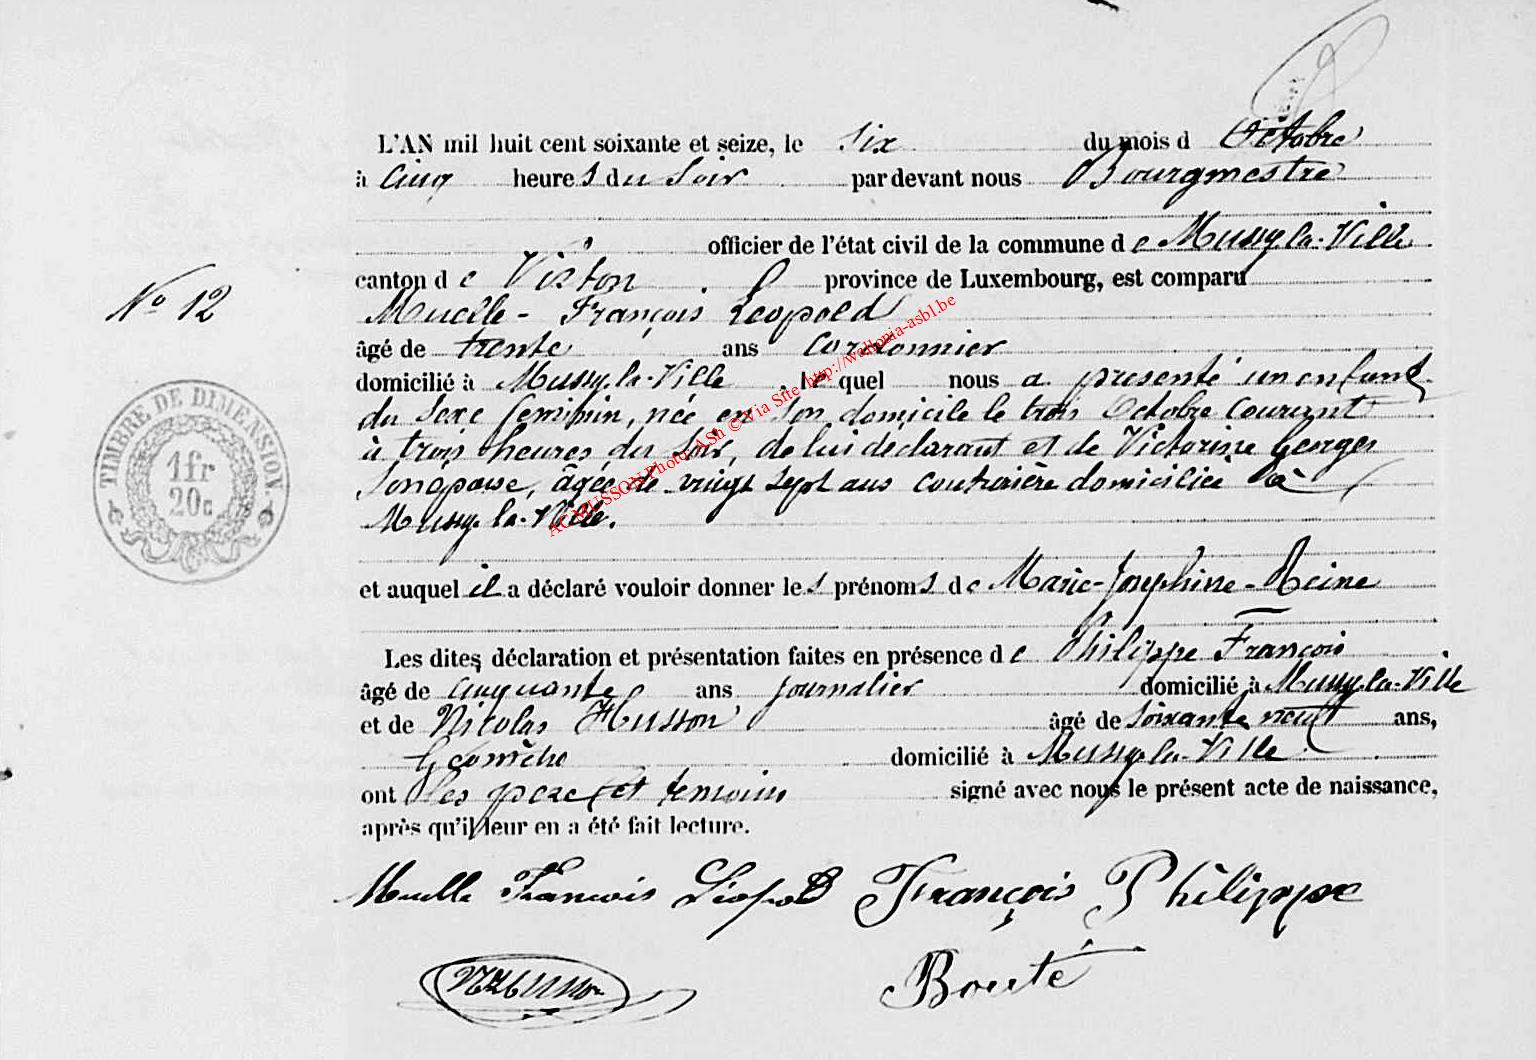 L'AN mil huit cent soixante et seize, le Six du mois d Octobre
à Cinq heures du Soir par devant nous Bourgmestre
officier de l'état civil de la commune de Mussy-la-Ville
canton de Virton province de Luxembourg, est comparu
No 12
Muelle - François Léopold
âgé de trente ans Cordonnier
domicilié à Mussy-la-Ville, lequel nous a présenté un enfant
du Sexe féminin, née en son domicile le trois Octobre Courant
à trois heures du Soir, de lui déclarant et de Victorine Georges
Son épouse, âgée de vingt Sept ans Couturière domiciliée à
Mussy-la-Ville.
et auquel il a déclaré vouloir donner les prénoms de Marie-Joséphine-Reine
Les dites déclaration et présentation faites en présence de Philippe François
âgé de Cinquante ans journalier domicilié à Mussy-la-Ville
et de Nicolas Husson âgé de Soixante neuf ans,
Géomètre domicilié à Mussy-la-Ville
ont les père et témoins signé avec nous le présent acte de naissance,
après qu'il leur en a été fait lecture.
Muelle François Léopold François Philippe
N Husson Bouté
TIMBRE DE DIMENSION
1 fr
20 c
AC MUSSON Photo ASh © Via Site http://wallonia-asbl.be